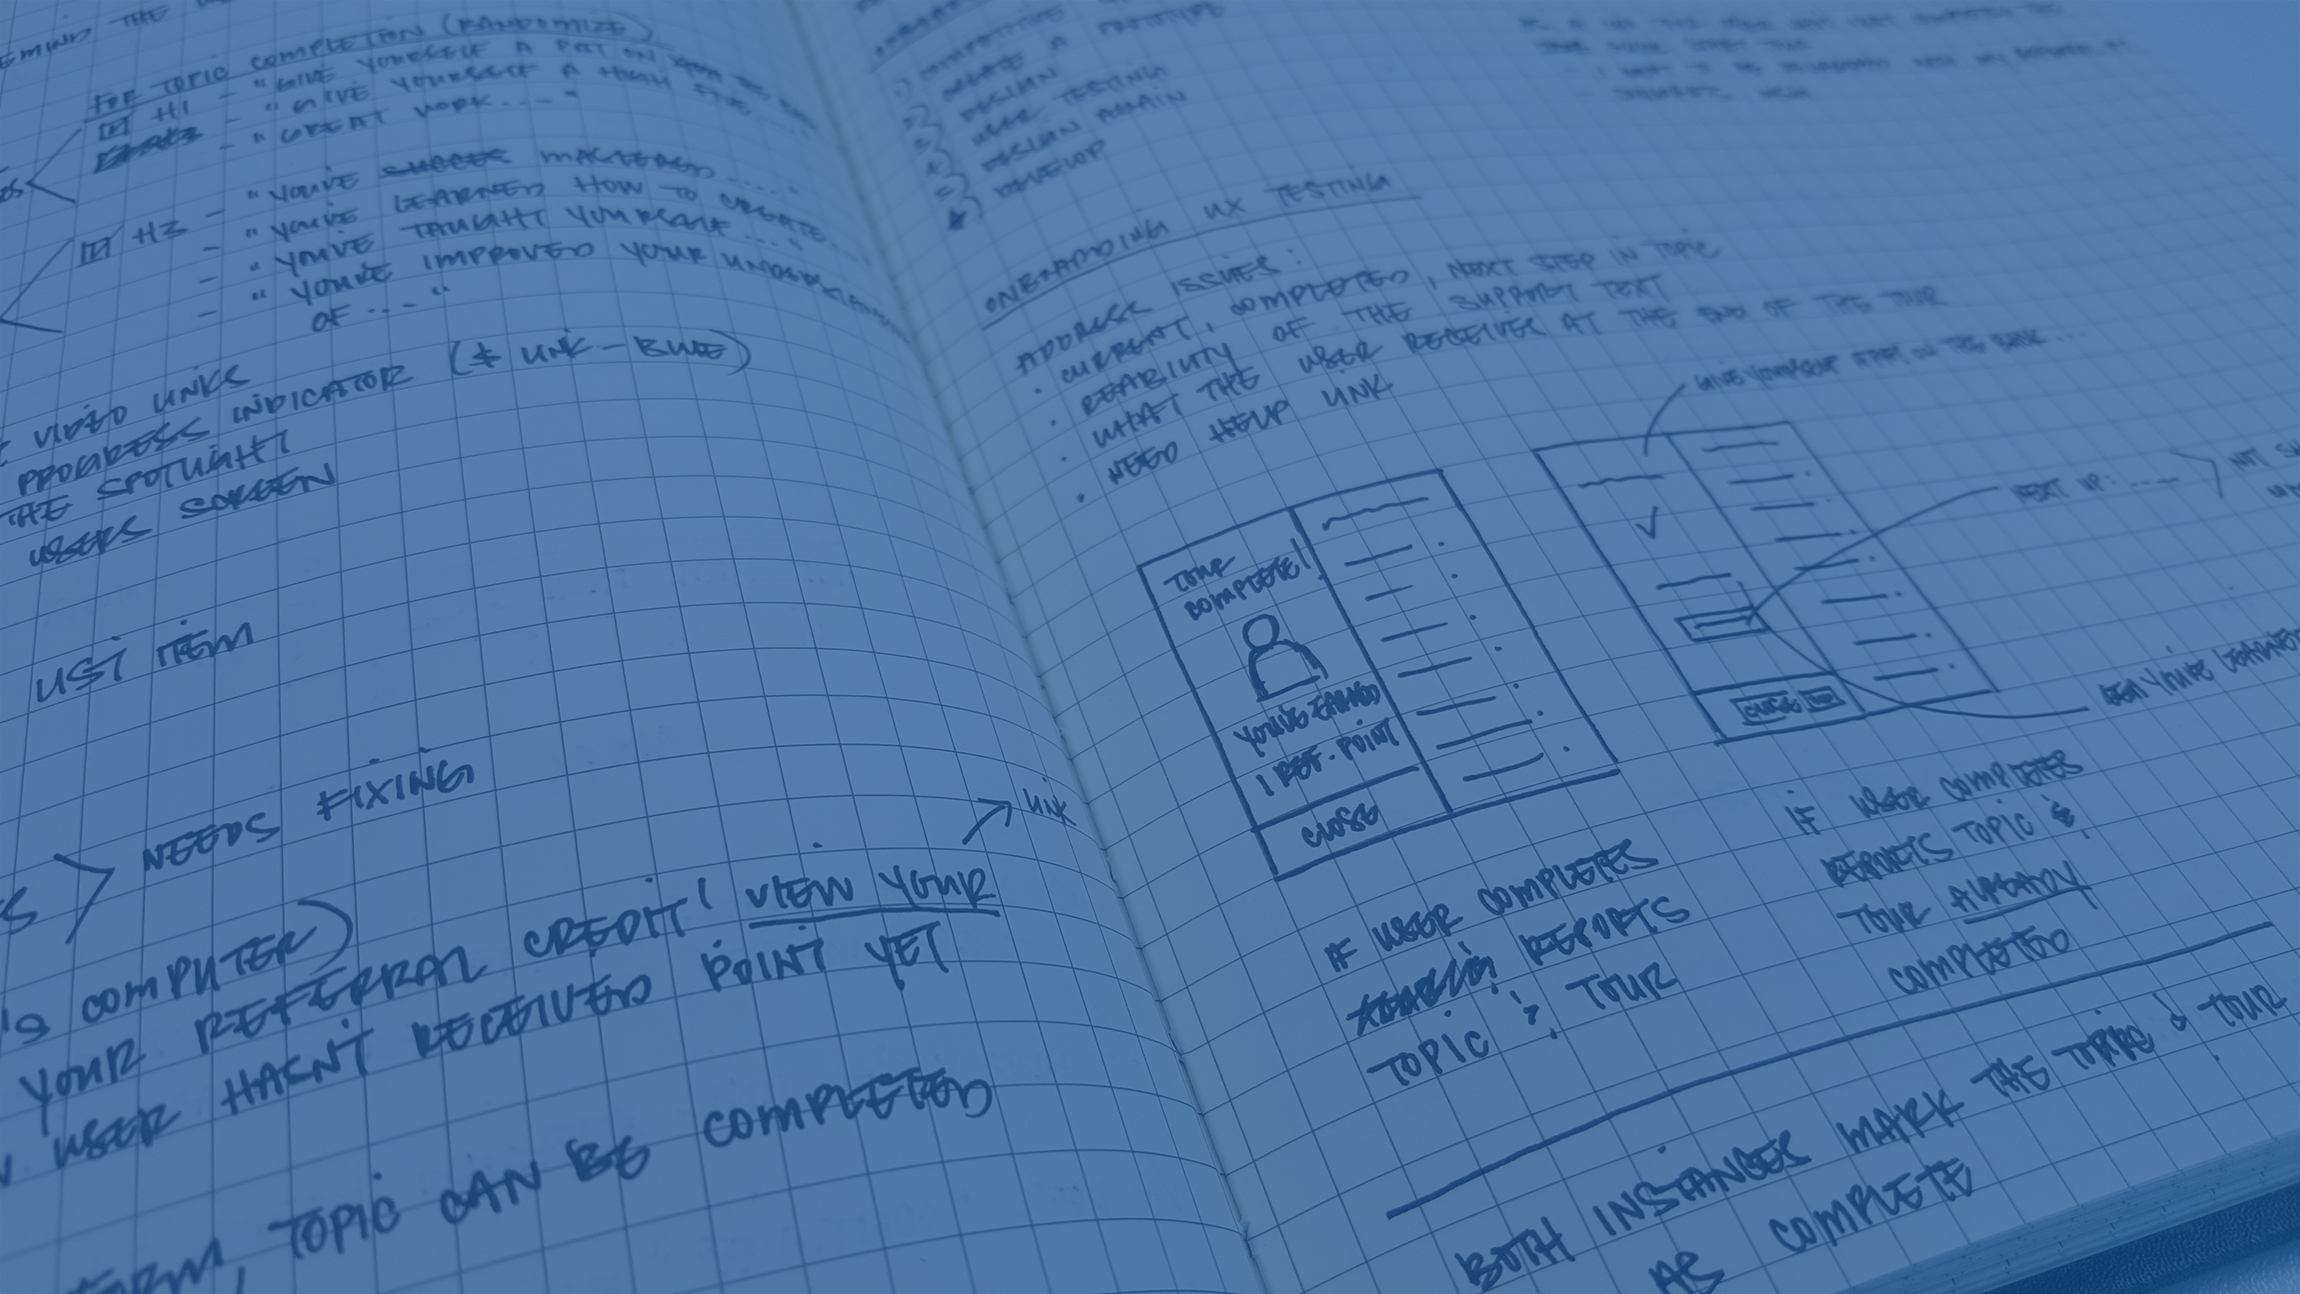 EMIND THE
FOR TOPIC COMPLETION (RANDOMIZE)
H1 - "GIVE YOURSELF A PAT ON
- "GIVE YOURSELF A HIGH FIVE....
- "GREAT WORK....."
H3 - "YOU'VE MASTERED.....
- "YOU'VE LEARNED HOW TO CREATE....
- "YOU'VE TAUGHT YOURSELF...."
- "YOU'VE IMPROVED YOUR
OF ...."
VIDEO LINKS
PROGRESS INDICATOR (& LINK - BLUE)
THE SPOTLIGHT
USERS SCREEN
LIST ITEM
NEEDS FIXING
'S COMPUTER)
YOUR REFERRAL CREDIT! VIEW YOUR
LINK
USER HASN'T RECEIVED POINT YET
TOPIC CAN BE COMPLETED
CREATE A PROTOTYPE
DESIGN
USER TESTING
DESIGN AGAIN
DEVELOP
ONBOARDING UX TESTING
ADDRESS ISSUES:
· CURRENT, COMPLETED, NEXT STEP IN TOPIC
· REABILITY OF THE SUPPORT TEXT
· WHAT THE USER RECEIVES AT THE END OF THE TOUR
· NEED HELP LINK
GIVE YOURSELF A PAT ON THE BACK...
NEXT UP: .....
TOUR
COMPLETE!
YOU'VE EARNED
1 REF. POINT
CLOSE
CLOSE
YOU'VE LEARNED
IF USER COMPLETES
REPORTS
TOPIC & TOUR
IF USER COMPLETES
REPORTS TOPIC &
TOUR ALREADY
COMPLETED
BOTH INSTANCES MARK THE TOPIC & TOUR
AS COMPLETE